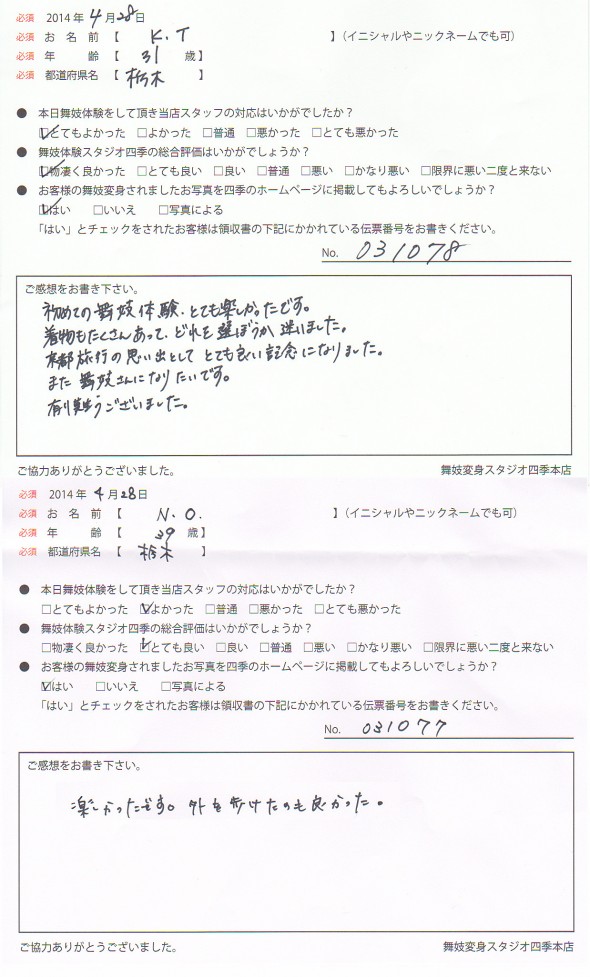 必須 2014年 4月28日
必須 お名前【 K.T 】(イニシャルやニックネームでも可)
必須 年齢【 31 歳】
必須 都道府県名【 栃木 】
● 本日舞妓体験をして頂き当店スタッフの対応はいかがでしたか?
☑とてもよかった □よかった □普通 □悪かった □とても悪かった
● 舞妓体験スタジオ四季の総合評価はいかがでしょうか?
☑物凄く良かった □とても良い □良い □普通 □悪い □かなり悪い □限界に悪い二度と来ない
● お客様の舞妓変身されましたお写真を四季のホームページに掲載してもよろしいでしょうか?
☑はい □いいえ □写真による
「はい」とチェックをされたお客様は領収書の下記にかかれている伝票番号をお書きください。
No. 031078
ご感想をお書き下さい。
初めての舞妓体験、とても楽しかったです。
着物もたくさんあって、どれを選ぼうか迷いました。
京都旅行の思い出として とても良い記念になりました。
また舞妓さんになりたいです。
有り難うございました。
ご協力ありがとうございました。 舞妓変身スタジオ四季本店
必須 2014年 4月28日
必須 お名前【 N.O. 】(イニシャルやニックネームでも可)
必須 年齢【 39 歳】
必須 都道府県名【 栃木 】
● 本日舞妓体験をして頂き当店スタッフの対応はいかがでしたか?
□とてもよかった ☑よかった □普通 □悪かった □とても悪かった
● 舞妓体験スタジオ四季の総合評価はいかがでしょうか?
□物凄く良かった ☑とても良い □良い □普通 □悪い □かなり悪い □限界に悪い二度と来ない
● お客様の舞妓変身されましたお写真を四季のホームページに掲載してもよろしいでしょうか?
☑はい □いいえ □写真による
「はい」とチェックをされたお客様は領収書の下記にかかれている伝票番号をお書きください。
No. 031077
ご感想をお書き下さい。
楽しかったです。外を歩けたのも良かった。
ご協力ありがとうございました。 舞妓変身スタジオ四季本店